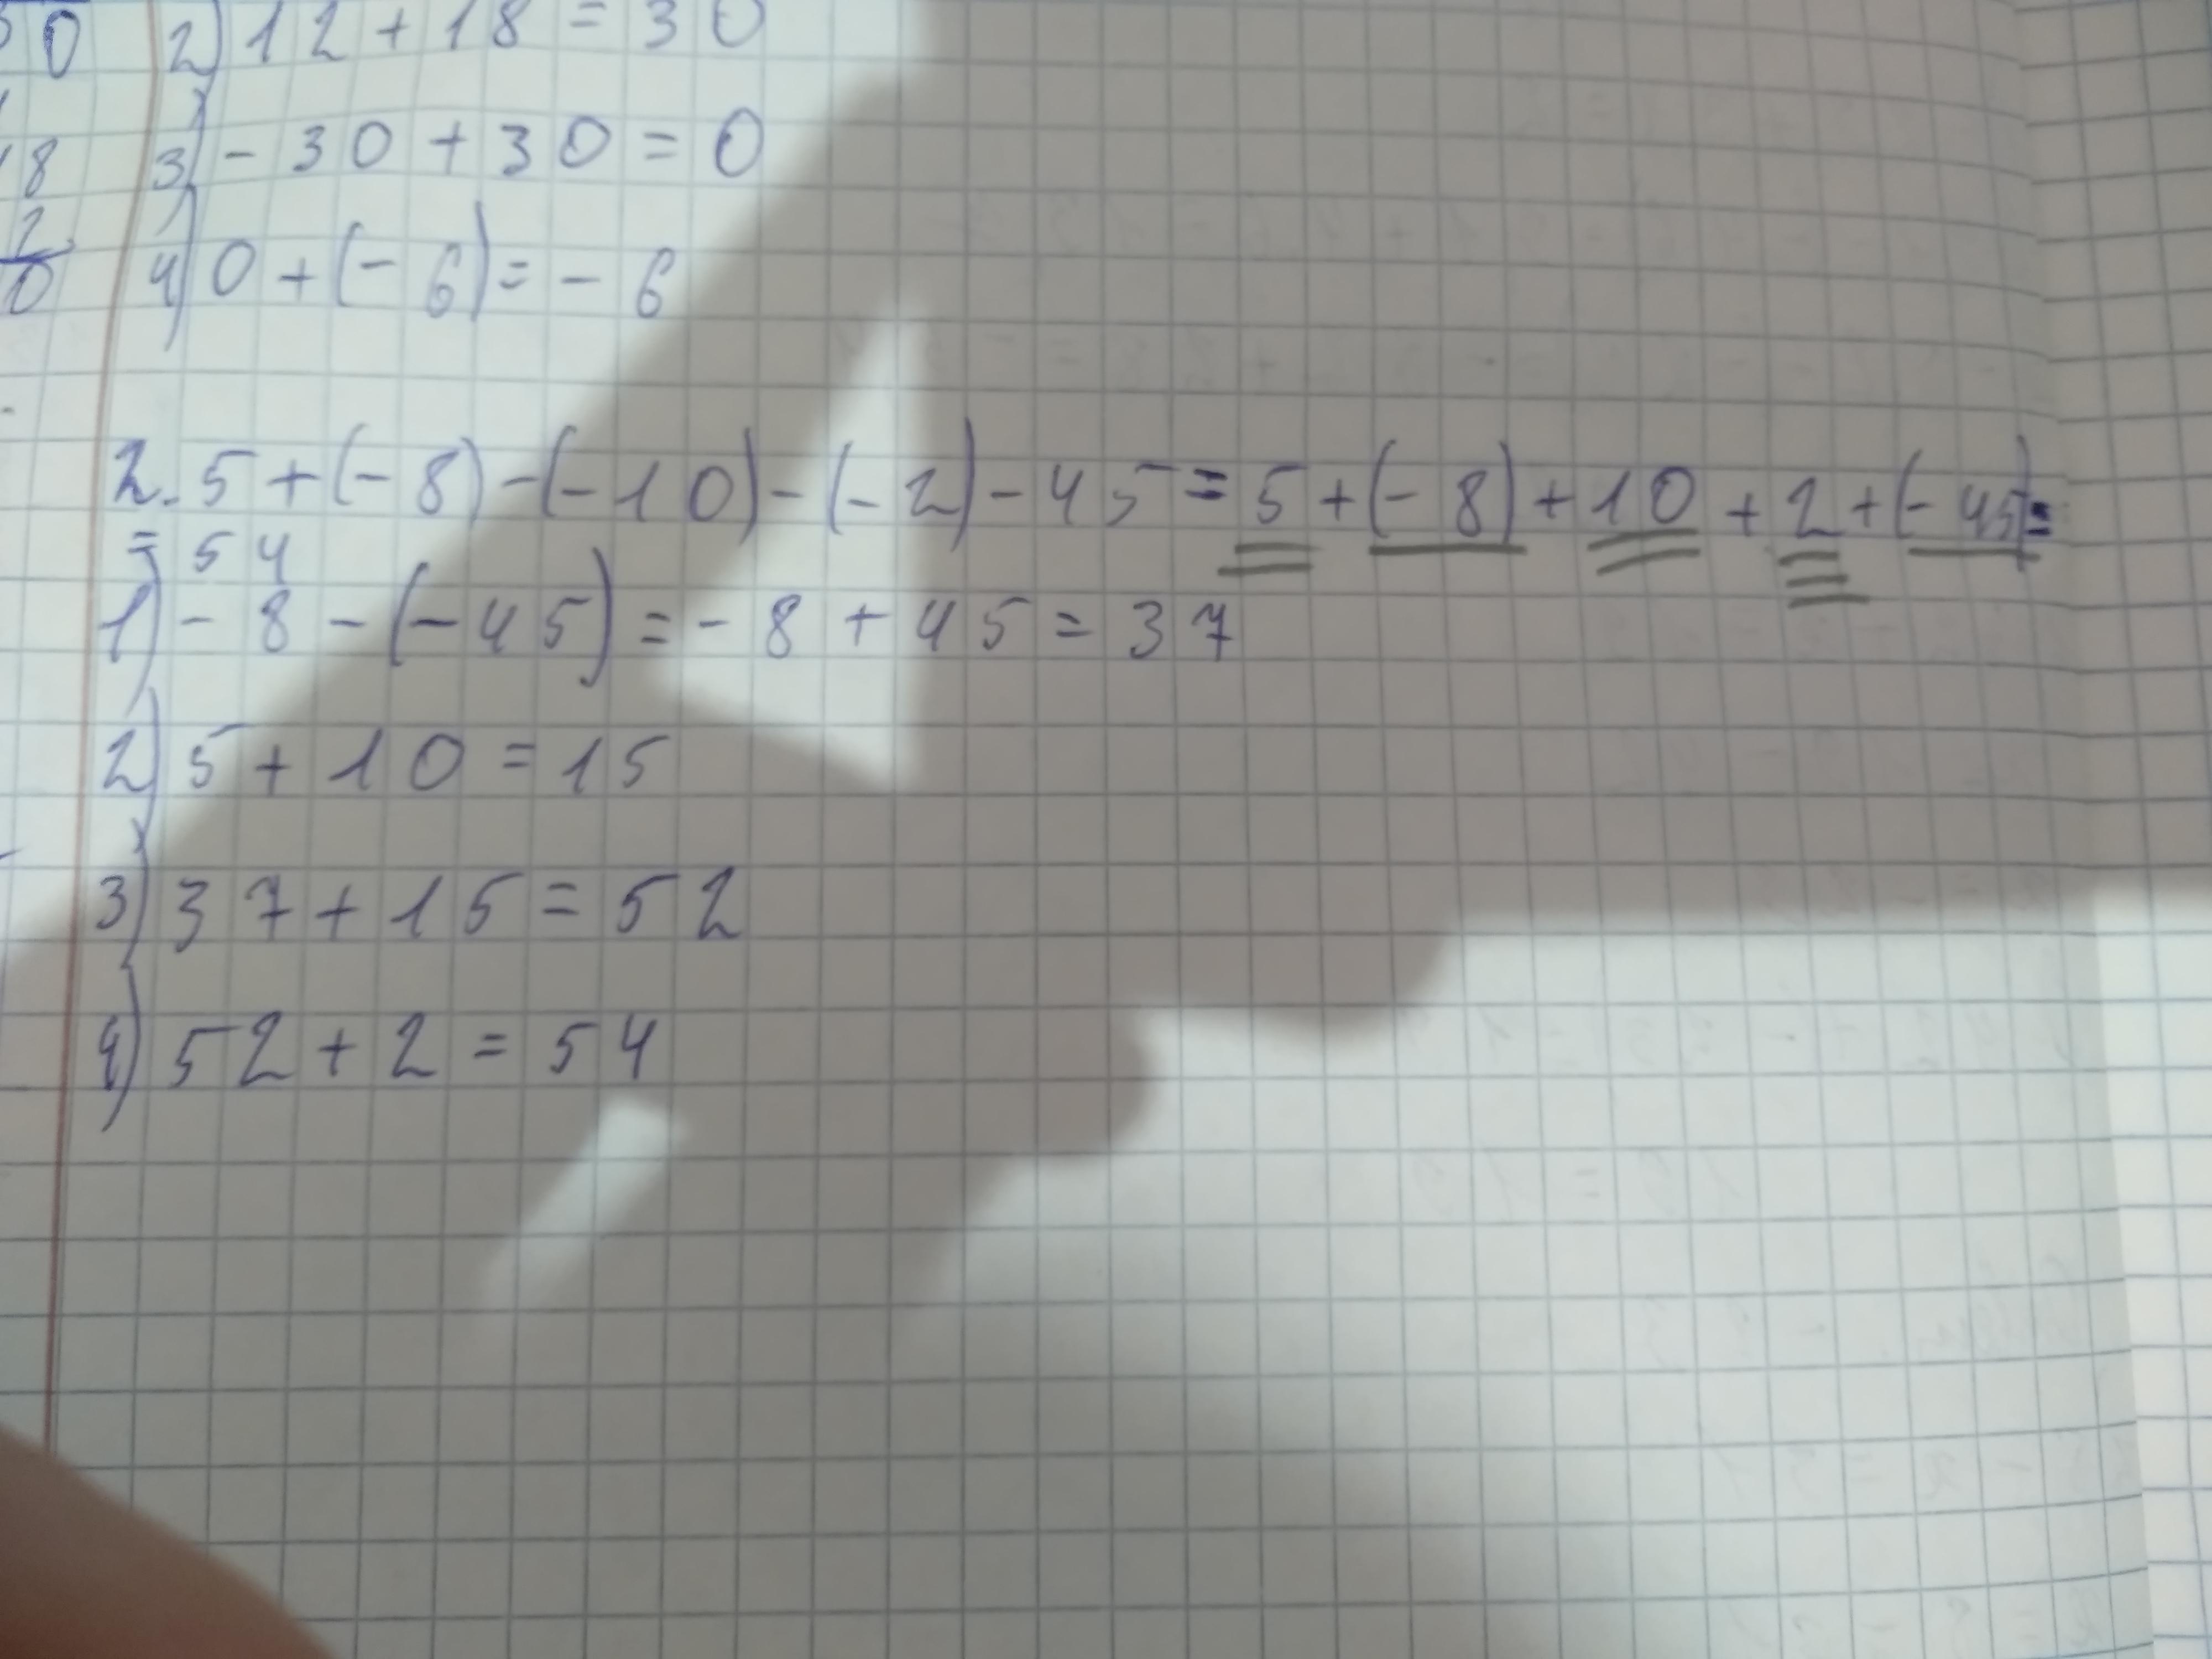 0 2) 12 + 18 = 30
8 3) - 30 + 30 = 0
2
0 4) 0 + (- 6) = - 6
2. 5 + (- 8) - (- 10) - (- 2) - 45 = 5 + (- 8) + 10 + 2 + (- 45) =
= 54
1) - 8 - (- 45) = - 8 + 45 = 37
2) 5 + 10 = 15
3) 37 + 15 = 52
4) 52 + 2 = 54